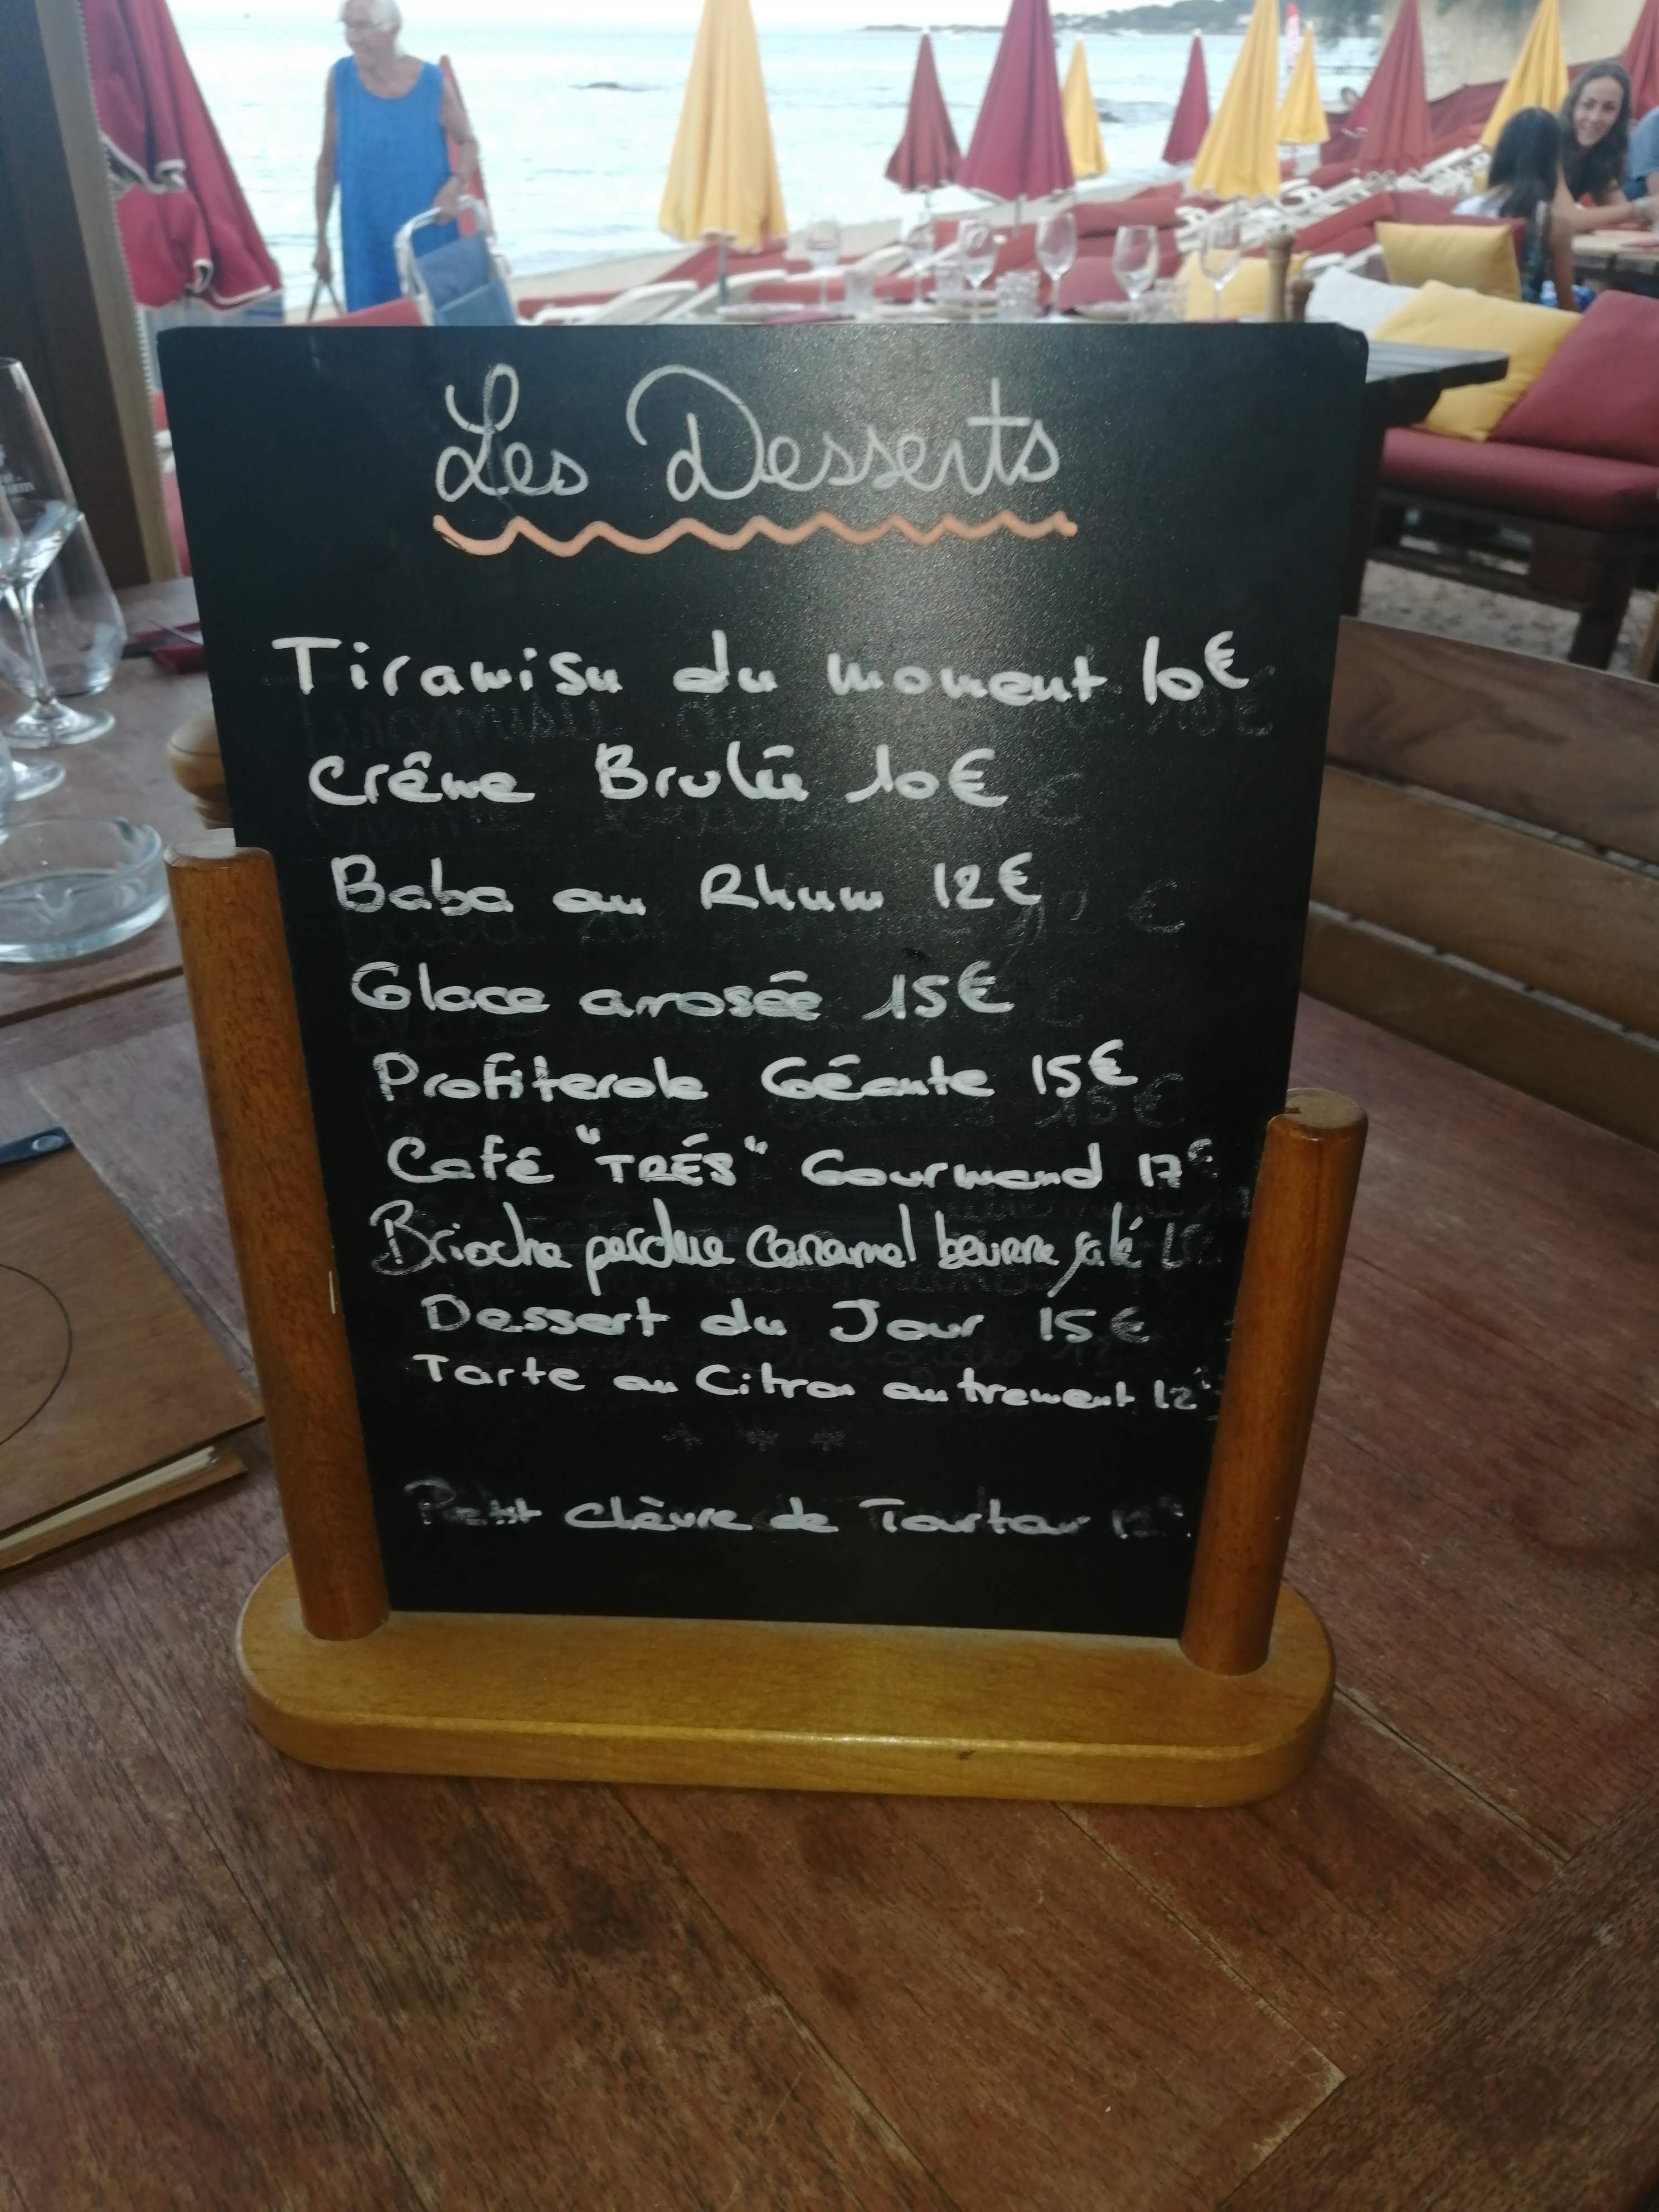 Les Desserts
Tiramisu du moment 10€
Crême Brulée 10€
Baba au Rhum 12€
Glace arrosée 15€
Profiterole Géante 15€
Café "TRÉS" Gourmand 17€
Brioche perdue Caramel beurre salé
Dessert du Jour 15€
Tarte au Citron autrement 12€
* * *
Petit Chèvre de Tourtour